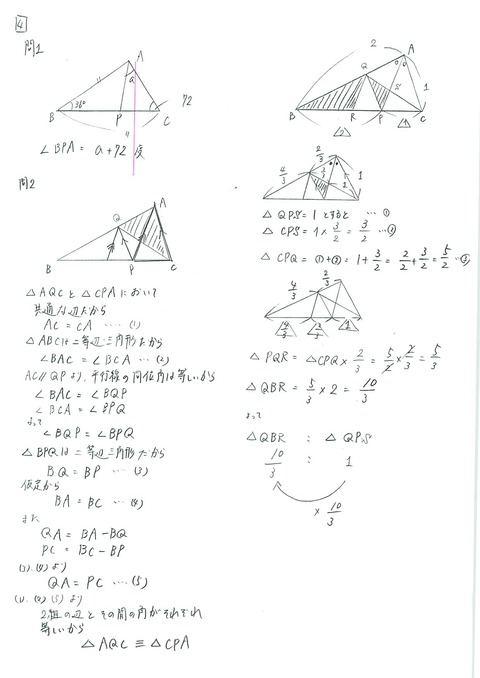 4
問1
A
a
〃
36°
72
B
P
C
〃
∠BPA = a+72 度
問2
A
Q
B
P
C
△AQCと△CPAにおいて
共通な辺だから
AC = CA ‥‥ (1)
△ABCは二等辺三角形だから
∠BAC = ∠BCA ‥‥ (2)
AC∥QPより、平行線の同位角は等しいから
∠BAC = ∠BQP
∠BCA = ∠BPQ
よって
∠BQP = ∠BPQ
△BPQは二等辺三角形だから
BQ = BP ‥‥ (3)
仮定から
BA = BC ‥‥ (4)
また
QA = BA - BQ
PC = BC - BP
(3), (4) より
QA = PC ‥‥ (5)
(1), (2), (5) より
2組の辺とその間の角がそれぞれ
等しいから
△AQC ≡ △CPA
2
A
Q
S
1
B
R
P
C
2
1
2/3
4/3
1
△QPS = 1 とすると ‥‥①
△CPS = 1 × 3/2 = 3/2 ‥‥②
△CPQ = ①+② = 1 + 3/2 = 2/2 + 3/2 = 5/2 ‥‥③
2/3
4/3
4/3
2/3
1
△PQR = △CPQ × 2/3 = 5/2 × 2/3 = 5/3
△QBR = 5/3 × 2 = 10/3
よって
△QBR : △QPS
10/3 : 1
× 10/3